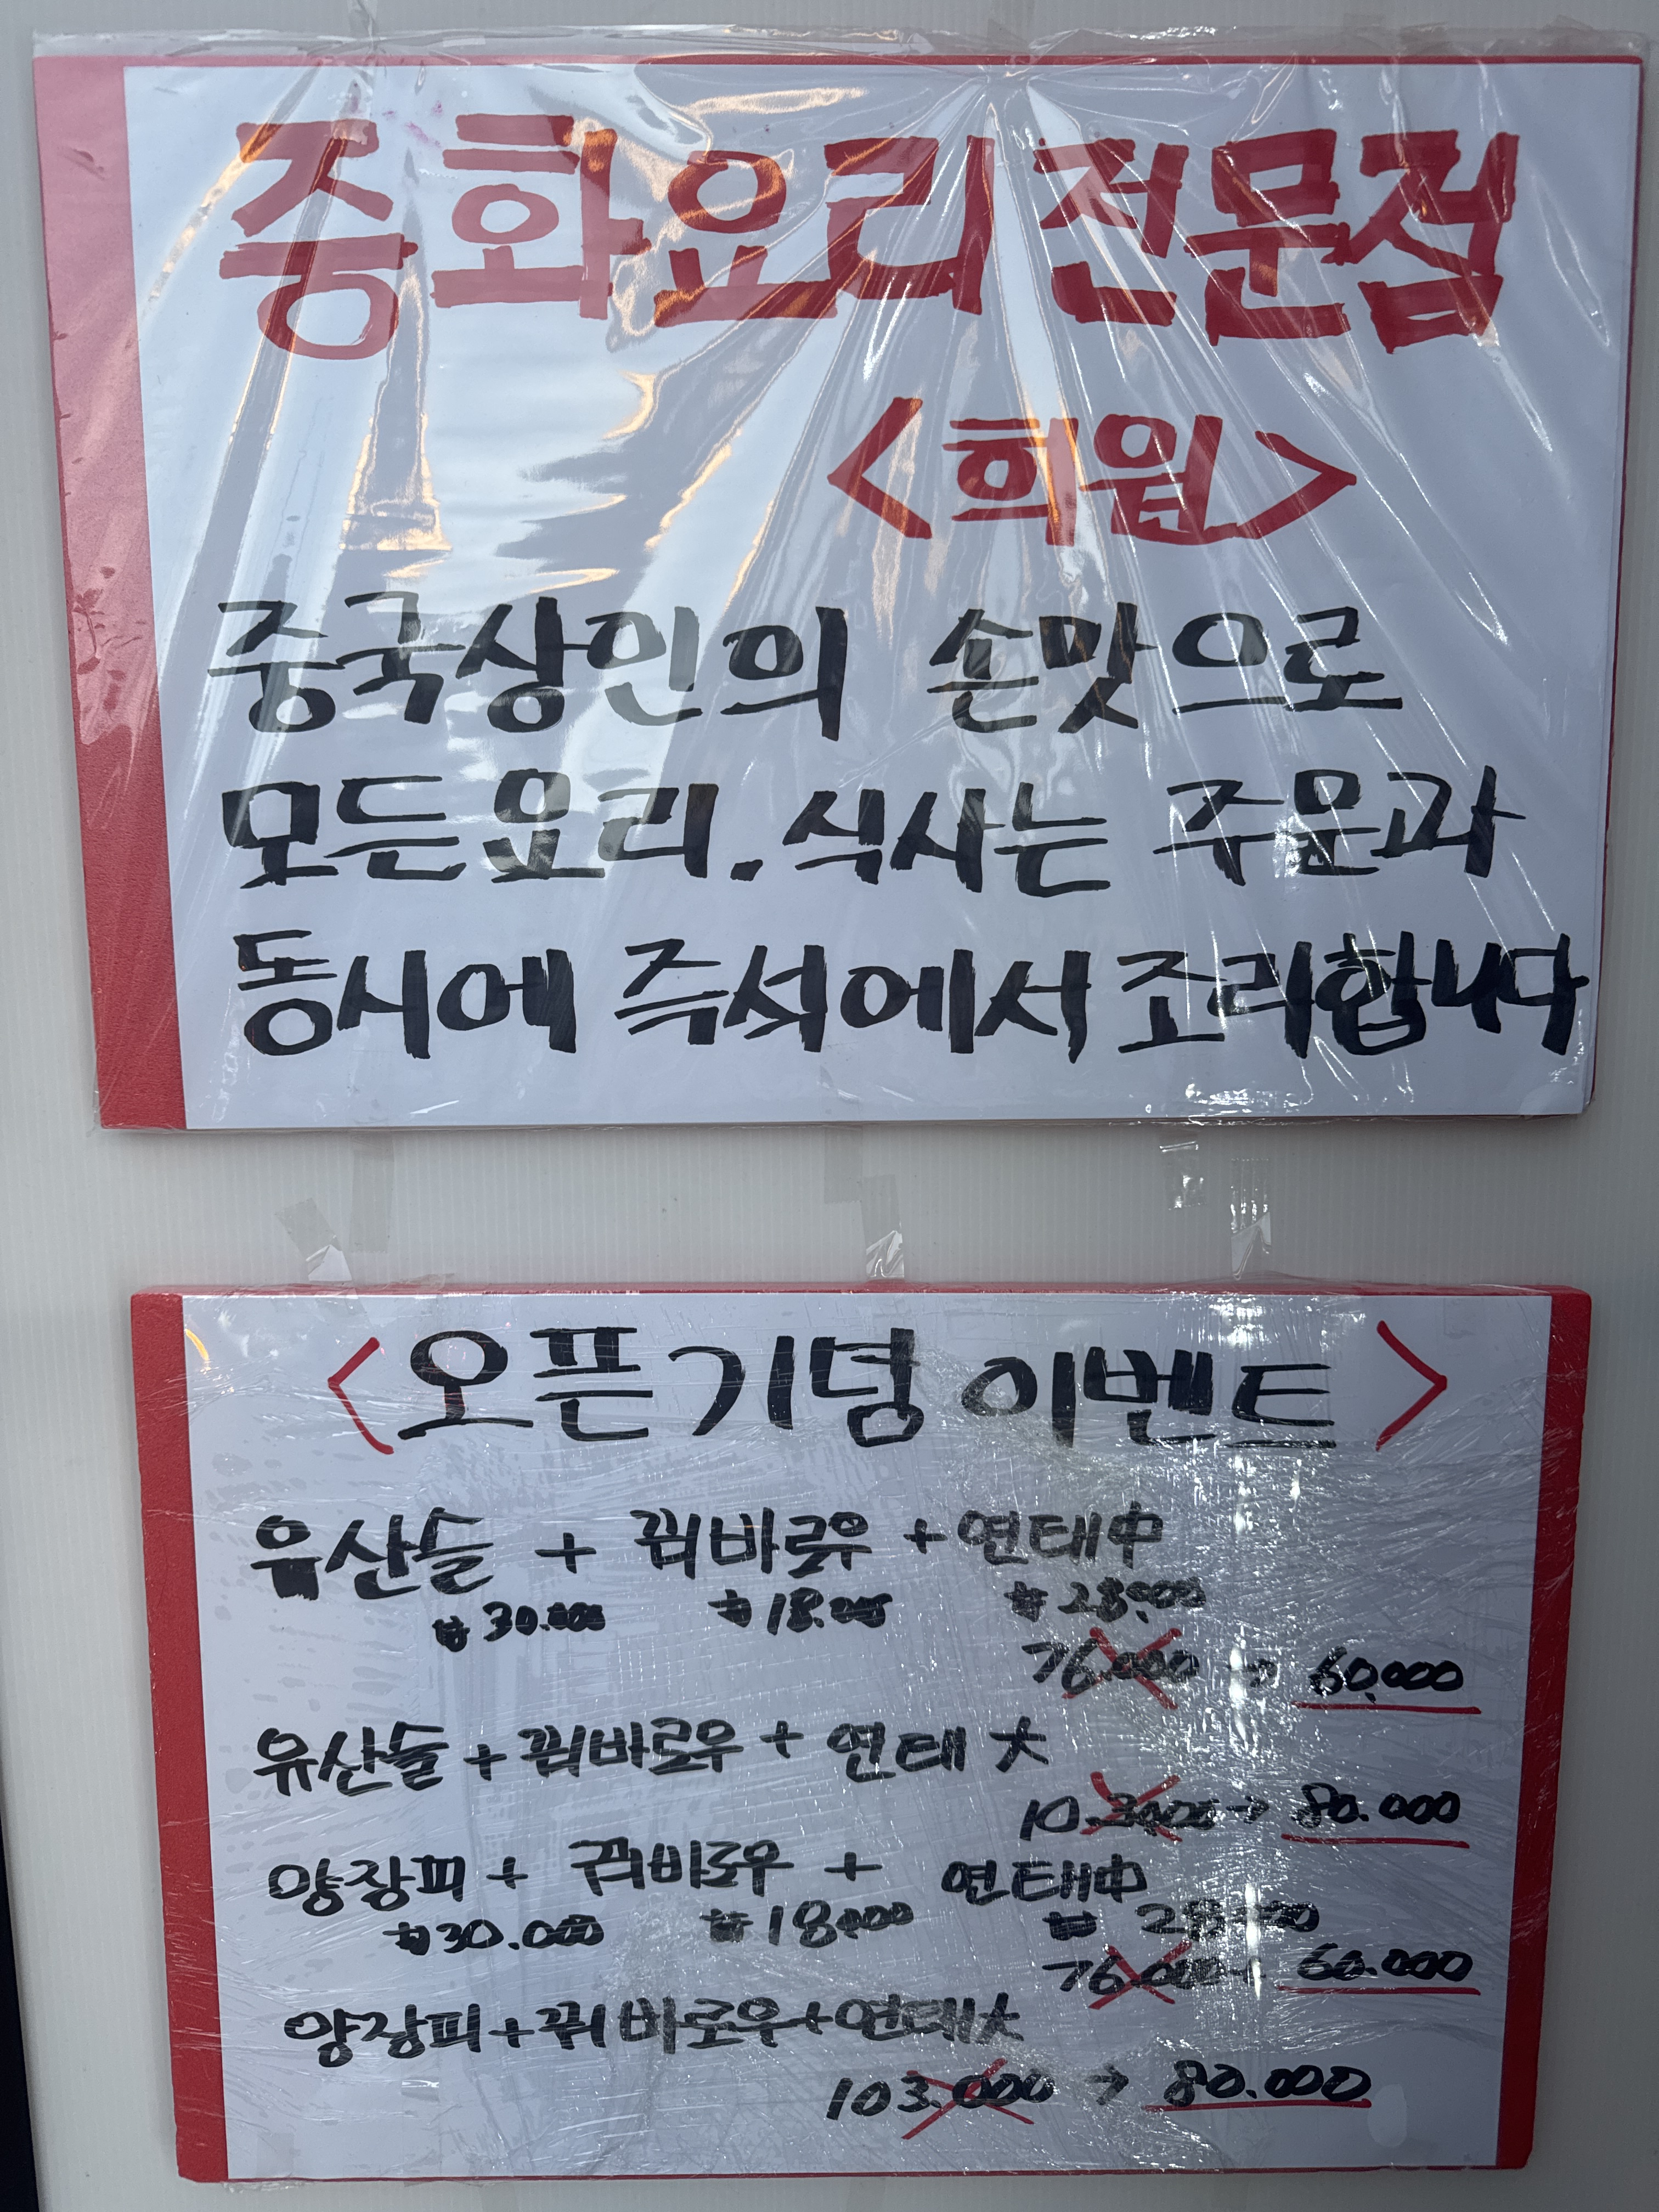 중화요리전문점
<희원>
중국상인의 손맛으로
모든요리.식사는 주문과
동시에 즉석에서 조리합니다
<오픈기념 이벤트>
유산슬 + 꿔바로우 + 연태中
₩30.000 ₩18.000 ₩28.000
76.000 → 60.000
유산슬 + 꿔바로우 + 연태 大
10.3000 → 80.000
양장피 + 꿔바로우 + 연태中
₩30.000 ₩18.000 ₩ 28.000
76.000 → 60.000
양장피+꿔바로우+연태大
103.000 → 80.000